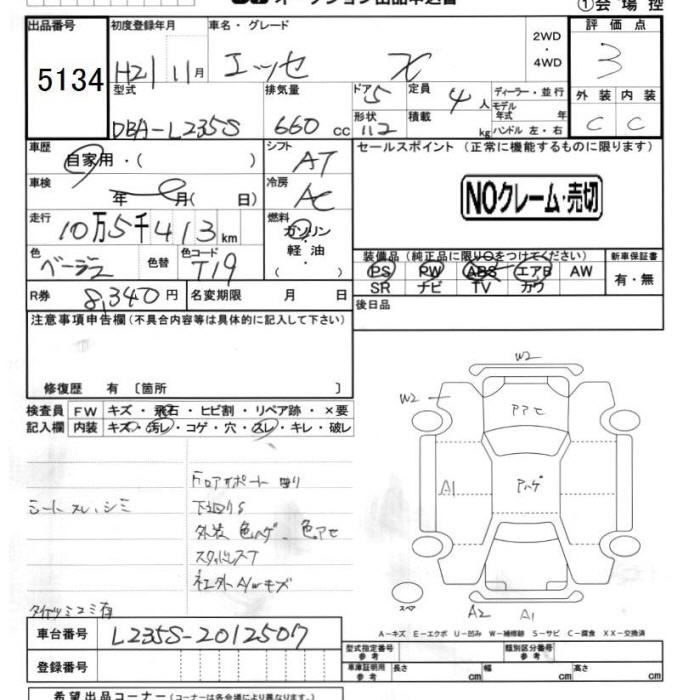 オークション出品申込書
①会場控
出品番号 初度登録年月 車名・グレード 2WD・4WD 評価点
5134 H21 11月 エッセ X 3
型式 排気量 ドア 5 定員 4人 ディーラー・並行 外装 内装
DBA-L235S 660cc 形状 112 積載 kg モデル年式 年 ハンドル 左・右 C C
車歴 シフト セールスポイント (正常に機能するものに限ります)
自家用・( ) AT
車検 冷房 NOクレーム・売切
年 月( 日) AC
走行 燃料
10万5千413km ガソリン・軽油・( )
色 色替 色コード 装備品(純正品に限り○をつけてください) 新車保証書
ベージュ T19 PS PW ABS エアB AW 有・無
SR ナビ TV カワ
R券 8,340円 名変期限 月 日 後日品
注意事項申告欄(不具合内容等は具体的に記入して下さい)
修復歴 有 〔箇所 〕
検査員 FW キズ・飛石・ヒビ割・リペア跡・×要
記入欄 内装 キズ・汚レ・コゲ・穴・スレ・キレ・破レ
W2
W2
アアセ
A1
A2 A1
スペア
シートスレ、シミ
下廻りS
外装 色ハゲ、色アセ
スタッドレスT
社外A/Wキズ
車台番号 L235S-2012507
A-キズ E-エクボ U-凹み W-補修跡 S-サビ C-腐食 XX-交換済
登録番号
型式指定番号 参考 類別区分番号 参考
車庫証明用 参考 長さ cm 幅 cm 高さ cm
希望出品コーナー(コーナーは各会場により異なります。)